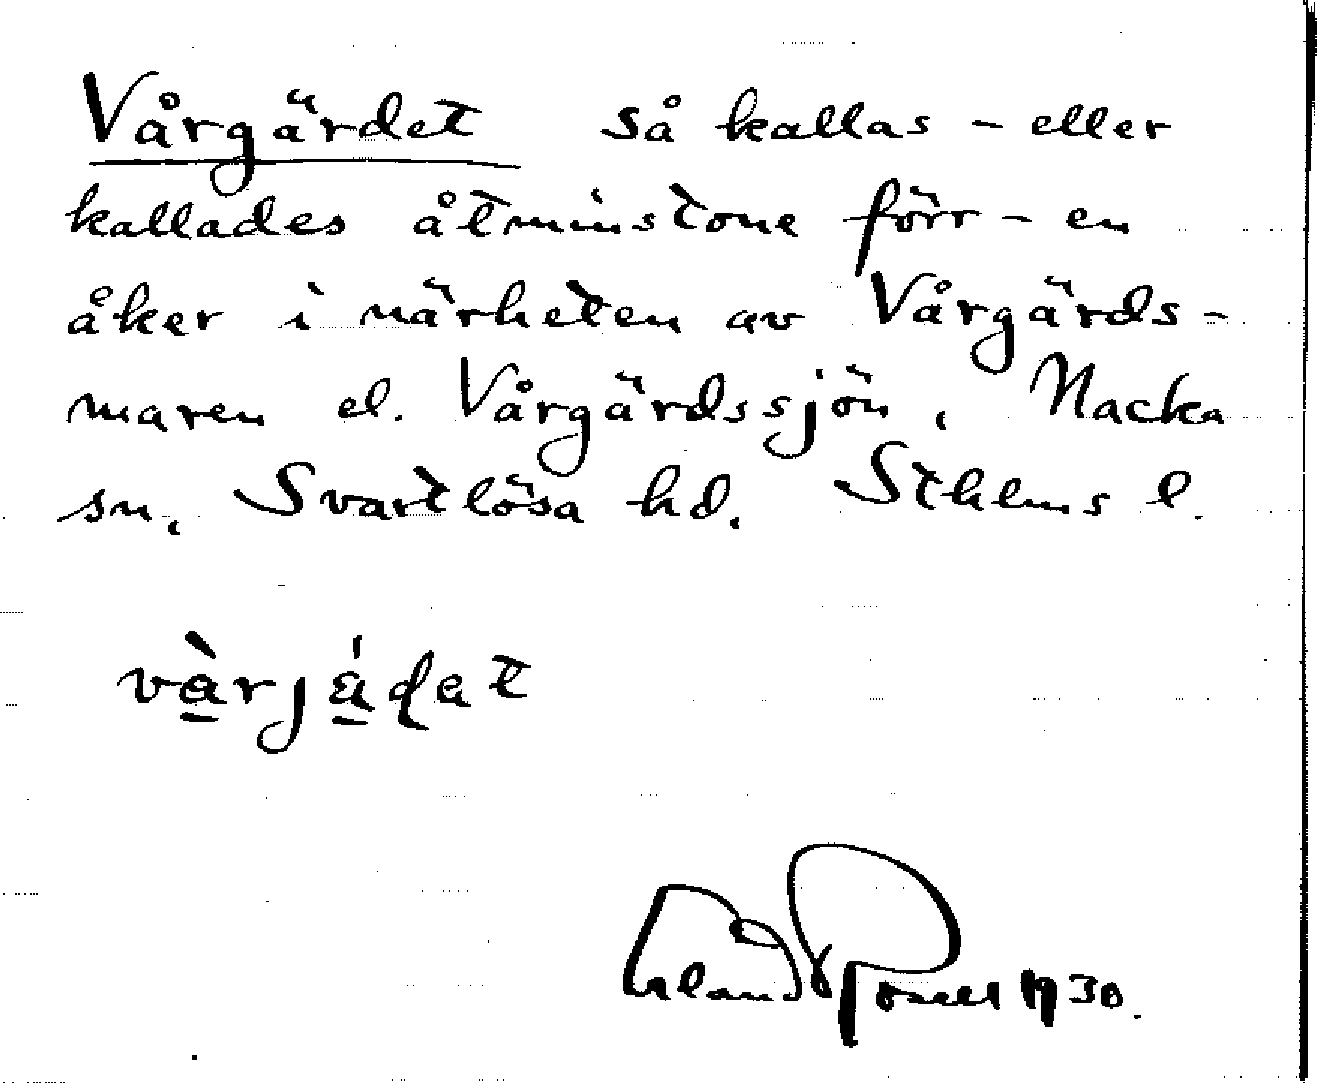 Vårgärdet så kallas - eller
kallades åtminstone förr - en
åker i närheten av Vårgärds-
maren el. Vårgärdssjön, Nacka
sn, Svartlösa hd. Sthlms l.
vàrjä́dat
Erland Rosell 1930.